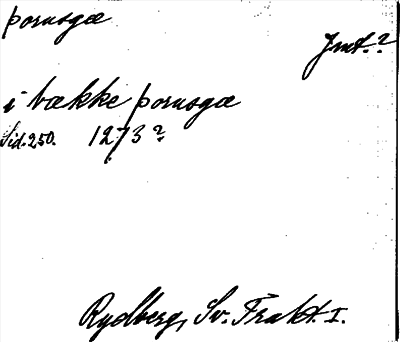 þornsgæ
Jmt.?
i bække þornsgæ
Sid. 250. 1273?
Rydberg, Sv. Trakt. I.